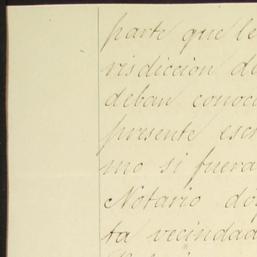 parte que le
risdiccion de
deban conoc
presente escr
mo si fuera
Notario do
ta vecindad